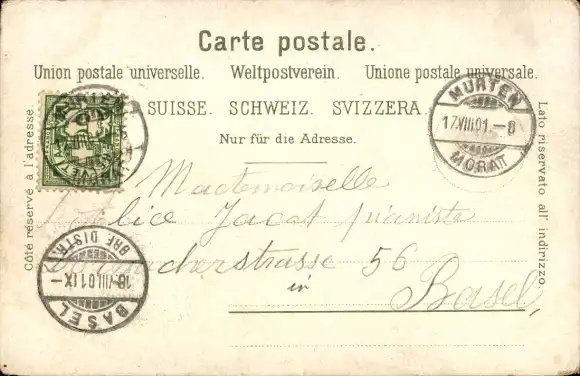 Carte postale.
Union postale universelle. Weltpostverein. Unione postale universale.
SUISSE. SCHWEIZ. SVIZZERA.
Nur für die Adresse.
Côté réservé à l'adresse.
Lato riservato all' indirizzo.
MURTEN
17.VIII.01.-8
MORAT
Mademoiselle
Alice Jacot pianiste
56
in
Basel,
BRE DISTR.
18.VIII.01 IX-
BASEL